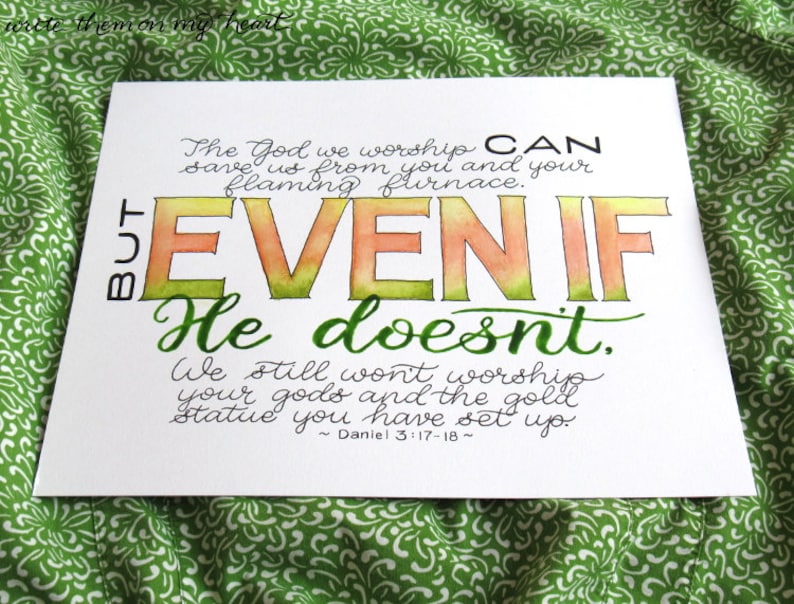 write them on my heart
The God we worship CAN
save us from you and your
flaming furnace.
BUT EVEN IF
He doesn't,
We still won't worship
your gods and the gold
statue you have set up.
~ Daniel 3:17-18 ~